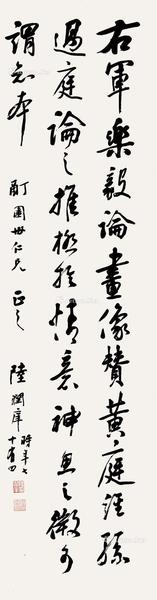 右軍樂毅論畫像贊黃庭經孫
過庭論之推極於情意神思之微可
謂知本
園世仁兄 正之
陸潤庠時年七
十有四